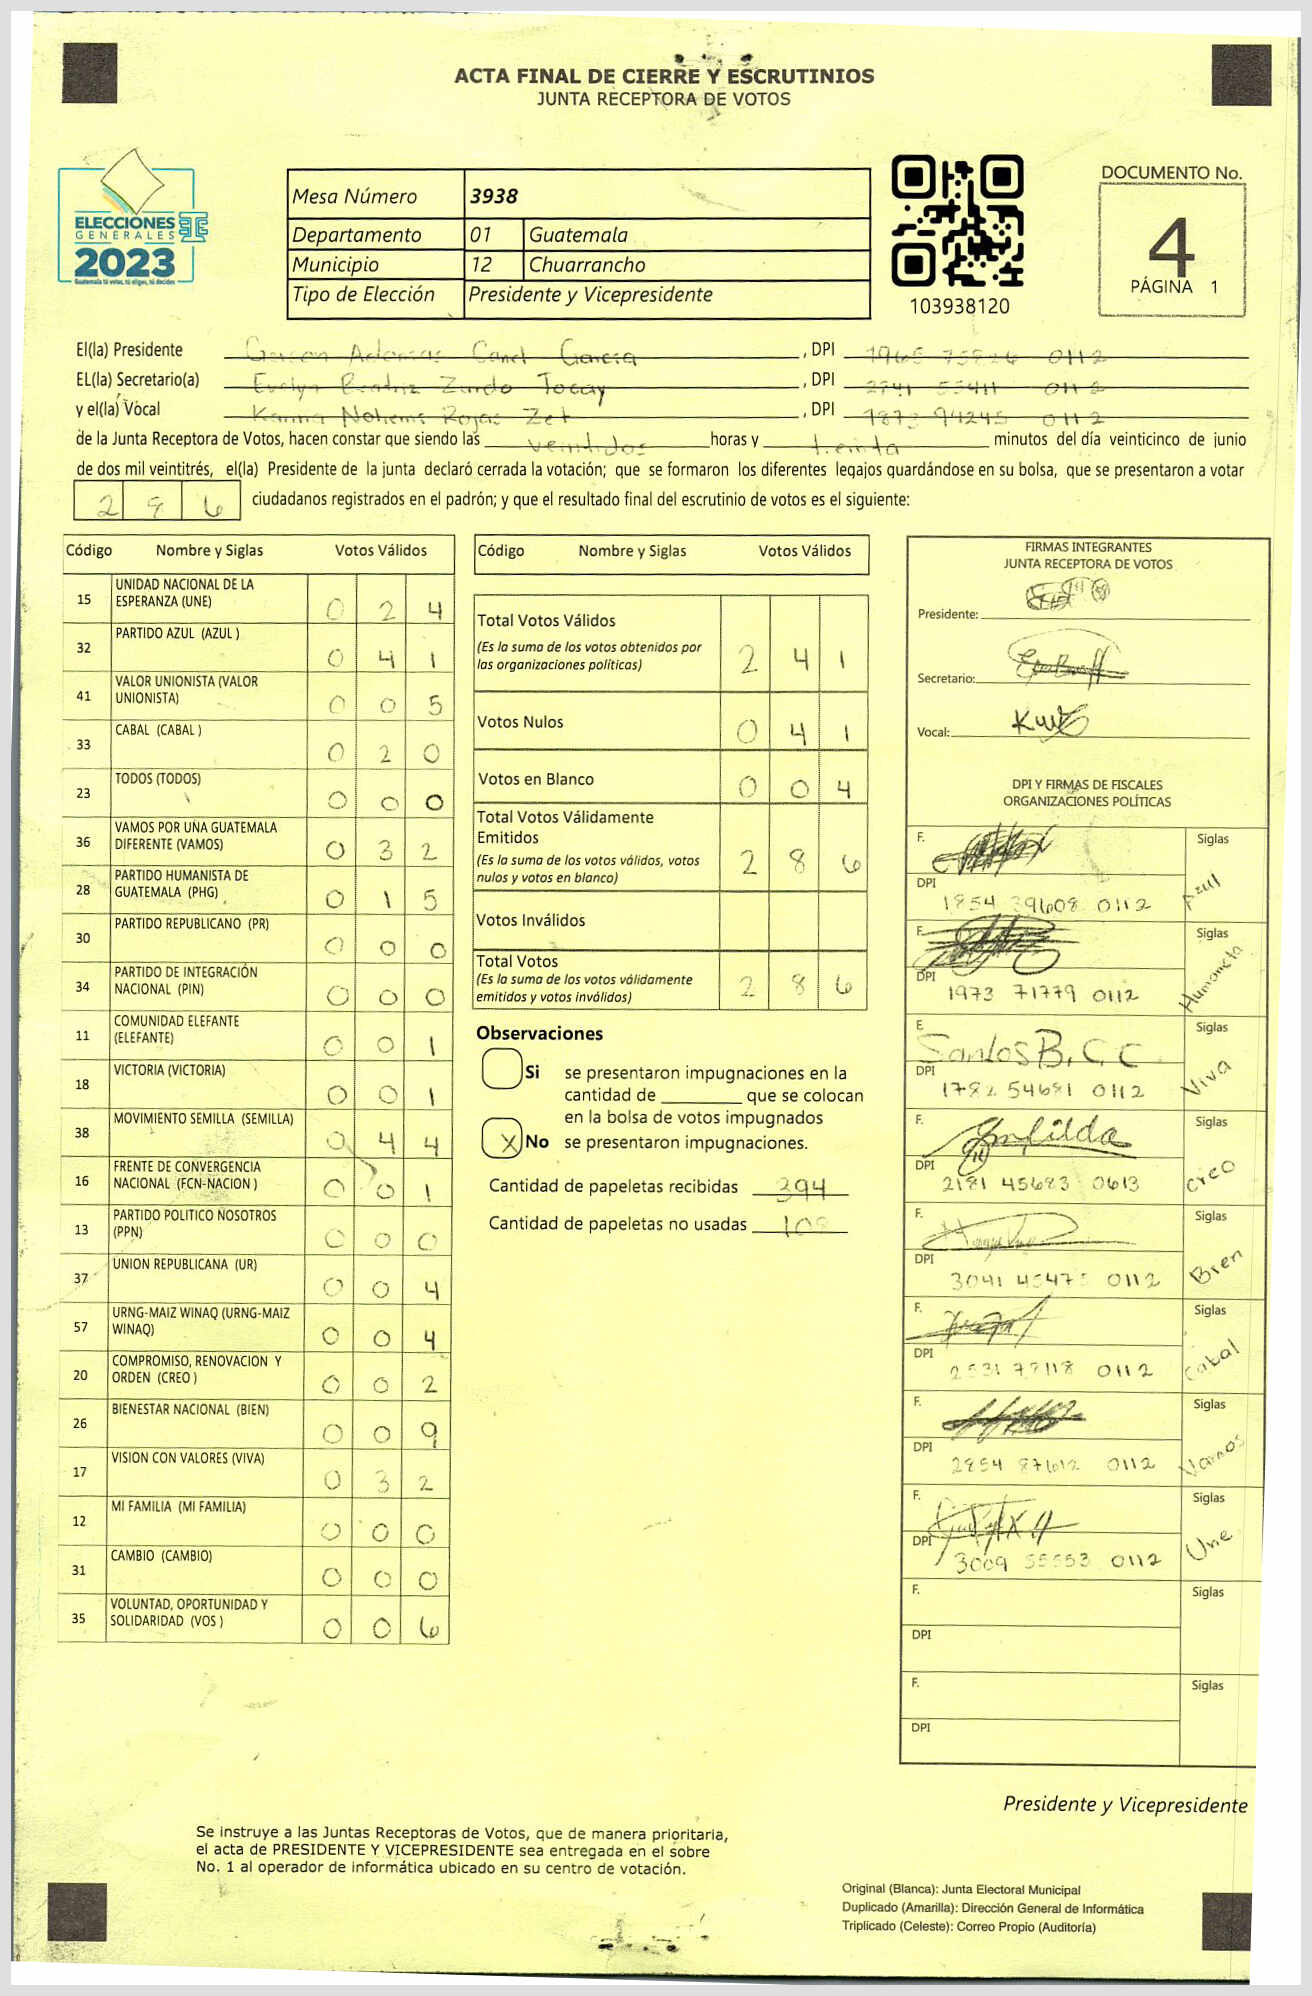 ACTA FINAL DE CIERRE Y ESCRUTINIOS
JUNTA RECEPTORA DE VOTOS
ELECCIONES
GENERALES
2023
Guatemala tú votas, tú eliges, tú decides
Mesa Número 3938
Departamento 01 Guatemala
Municipio 12 Chuarrancho
Tipo de Elección Presidente y Vicepresidente
103938120
DOCUMENTO No.
4
PÁGINA 1
El(la) Presidente Canel García , DPI 0112
EL(la) Secretario(a) Evelyn Beatriz Zurdo Tocay , DPI 0112
y el(la) Vocal Karina Nohemi Rojas Zet , DPI 94245 0112
de la Junta Receptora de Votos, hacen constar que siendo las veintidos horas y treinta minutos del día veinticinco de junio
de dos mil veintitrés, el(la) Presidente de la junta declaró cerrada la votación; que se formaron los diferentes legajos guardándose en su bolsa, que se presentaron a votar
ciudadanos registrados en el padrón; y que el resultado final del escrutinio de votos es el siguiente:
Código Nombre y Siglas Votos Válidos
15 UNIDAD NACIONAL DE LA ESPERANZA (UNE) 0 2 4
32 PARTIDO AZUL (AZUL ) 0 4 1
41 VALOR UNIONISTA (VALOR UNIONISTA) 0 0 5
33 CABAL (CABAL ) 0 2 0
23 TODOS (TODOS) 0 0 0
36 VAMOS POR UNA GUATEMALA DIFERENTE (VAMOS) 0 3 2
28 PARTIDO HUMANISTA DE GUATEMALA (PHG) 0 1 5
30 PARTIDO REPUBLICANO (PR) 0 0 0
34 PARTIDO DE INTEGRACIÓN NACIONAL (PIN) 0 0 0
11 COMUNIDAD ELEFANTE (ELEFANTE) 0 0 1
18 VICTORIA (VICTORIA) 0 0 1
38 MOVIMIENTO SEMILLA (SEMILLA) 0 4 4
16 FRENTE DE CONVERGENCIA NACIONAL (FCN-NACION ) 0 0 1
13 PARTIDO POLITICO NOSOTROS (PPN) 0 0 0
37 UNION REPUBLICANA (UR) 0 0 4
57 URNG-MAIZ WINAQ (URNG-MAIZ WINAQ) 0 0 4
20 COMPROMISO, RENOVACION Y ORDEN (CREO ) 0 0 2
26 BIENESTAR NACIONAL (BIEN) 0 0 9
17 VISION CON VALORES (VIVA) 0 3 2
12 MI FAMILIA (MI FAMILIA) 0 0 0
31 CAMBIO (CAMBIO) 0 0 0
35 VOLUNTAD, OPORTUNIDAD Y SOLIDARIDAD (VOS ) 0 0 6
Código Nombre y Siglas Votos Válidos
Total Votos Válidos 2 4 1
(Es la suma de los votos obtenidos por
las organizaciones políticas)
Votos Nulos 0 4 1
Votos en Blanco 0 0 4
Total Votos Válidamente
Emitidos 2 8 6
(Es la suma de los votos válidos, votos
nulos y votos en blanco)
Votos Inválidos
Total Votos 2 8 6
(Es la suma de los votos válidamente
emitidos y votos inválidos)
Observaciones
Si se presentaron impugnaciones en la
cantidad de ________ que se colocan
en la bolsa de votos impugnados
X No se presentaron impugnaciones.
Cantidad de papeletas recibidas 394
Cantidad de papeletas no usadas 108
FIRMAS INTEGRANTES
JUNTA RECEPTORA DE VOTOS
Presidente:
Secretario:
Vocal:
DPI Y FIRMAS DE FISCALES
ORGANIZACIONES POLÍTICAS
F. Siglas Azul
DPI 1854 39608 0112
F. Siglas Humanista
DPI 1973 71779 0112
F. Santos B. C. C Siglas Viva
DPI 1782 54681 0112
F. Siglas Creo
DPI 2181 45683 0613
F. Siglas Bien
DPI 3041 45475 0112
F. Siglas Cabal
DPI 2531 79118 0112
F. Siglas Vamos
DPI 2854 87612 0112
F. Siglas Une
DPI 3009 55553 0112
F. Siglas
DPI
F. Siglas
DPI
Presidente y Vicepresidente
Se instruye a las Juntas Receptoras de Votos, que de manera prioritaria,
el acta de PRESIDENTE Y VICEPRESIDENTE sea entregada en el sobre
No. 1 al operador de informática ubicado en su centro de votación.
Original (Blanca): Junta Electoral Municipal
Duplicado (Amarilla): Dirección General de Informática
Triplicado (Celeste): Correo Propio (Auditoría)